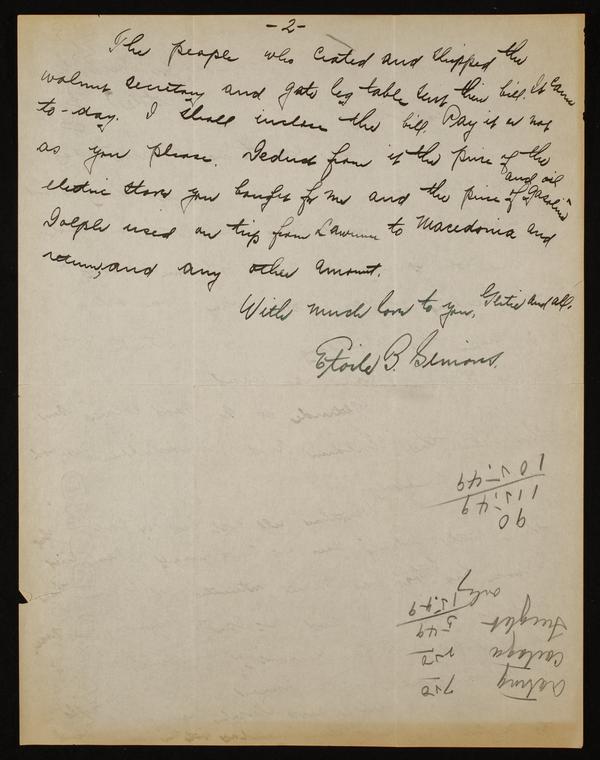 -2-
The people who crated and shipped the
walnut secretary and gate leg table sent their bill. It came
to-day. I shall inclose the bill. Pay it or not
as you please. Deduct from it the price of the
electric stove you bought for me and the price of gasoline
and oil
Dolph used on trip from Lawrence to Macedonia and
return, and any other amount.
With much love to you, and all.
Etoile B. Simons.
90
115.49
105.49
Crating 7.50
Cartage 2.50
Freight 5.49
15.49
only